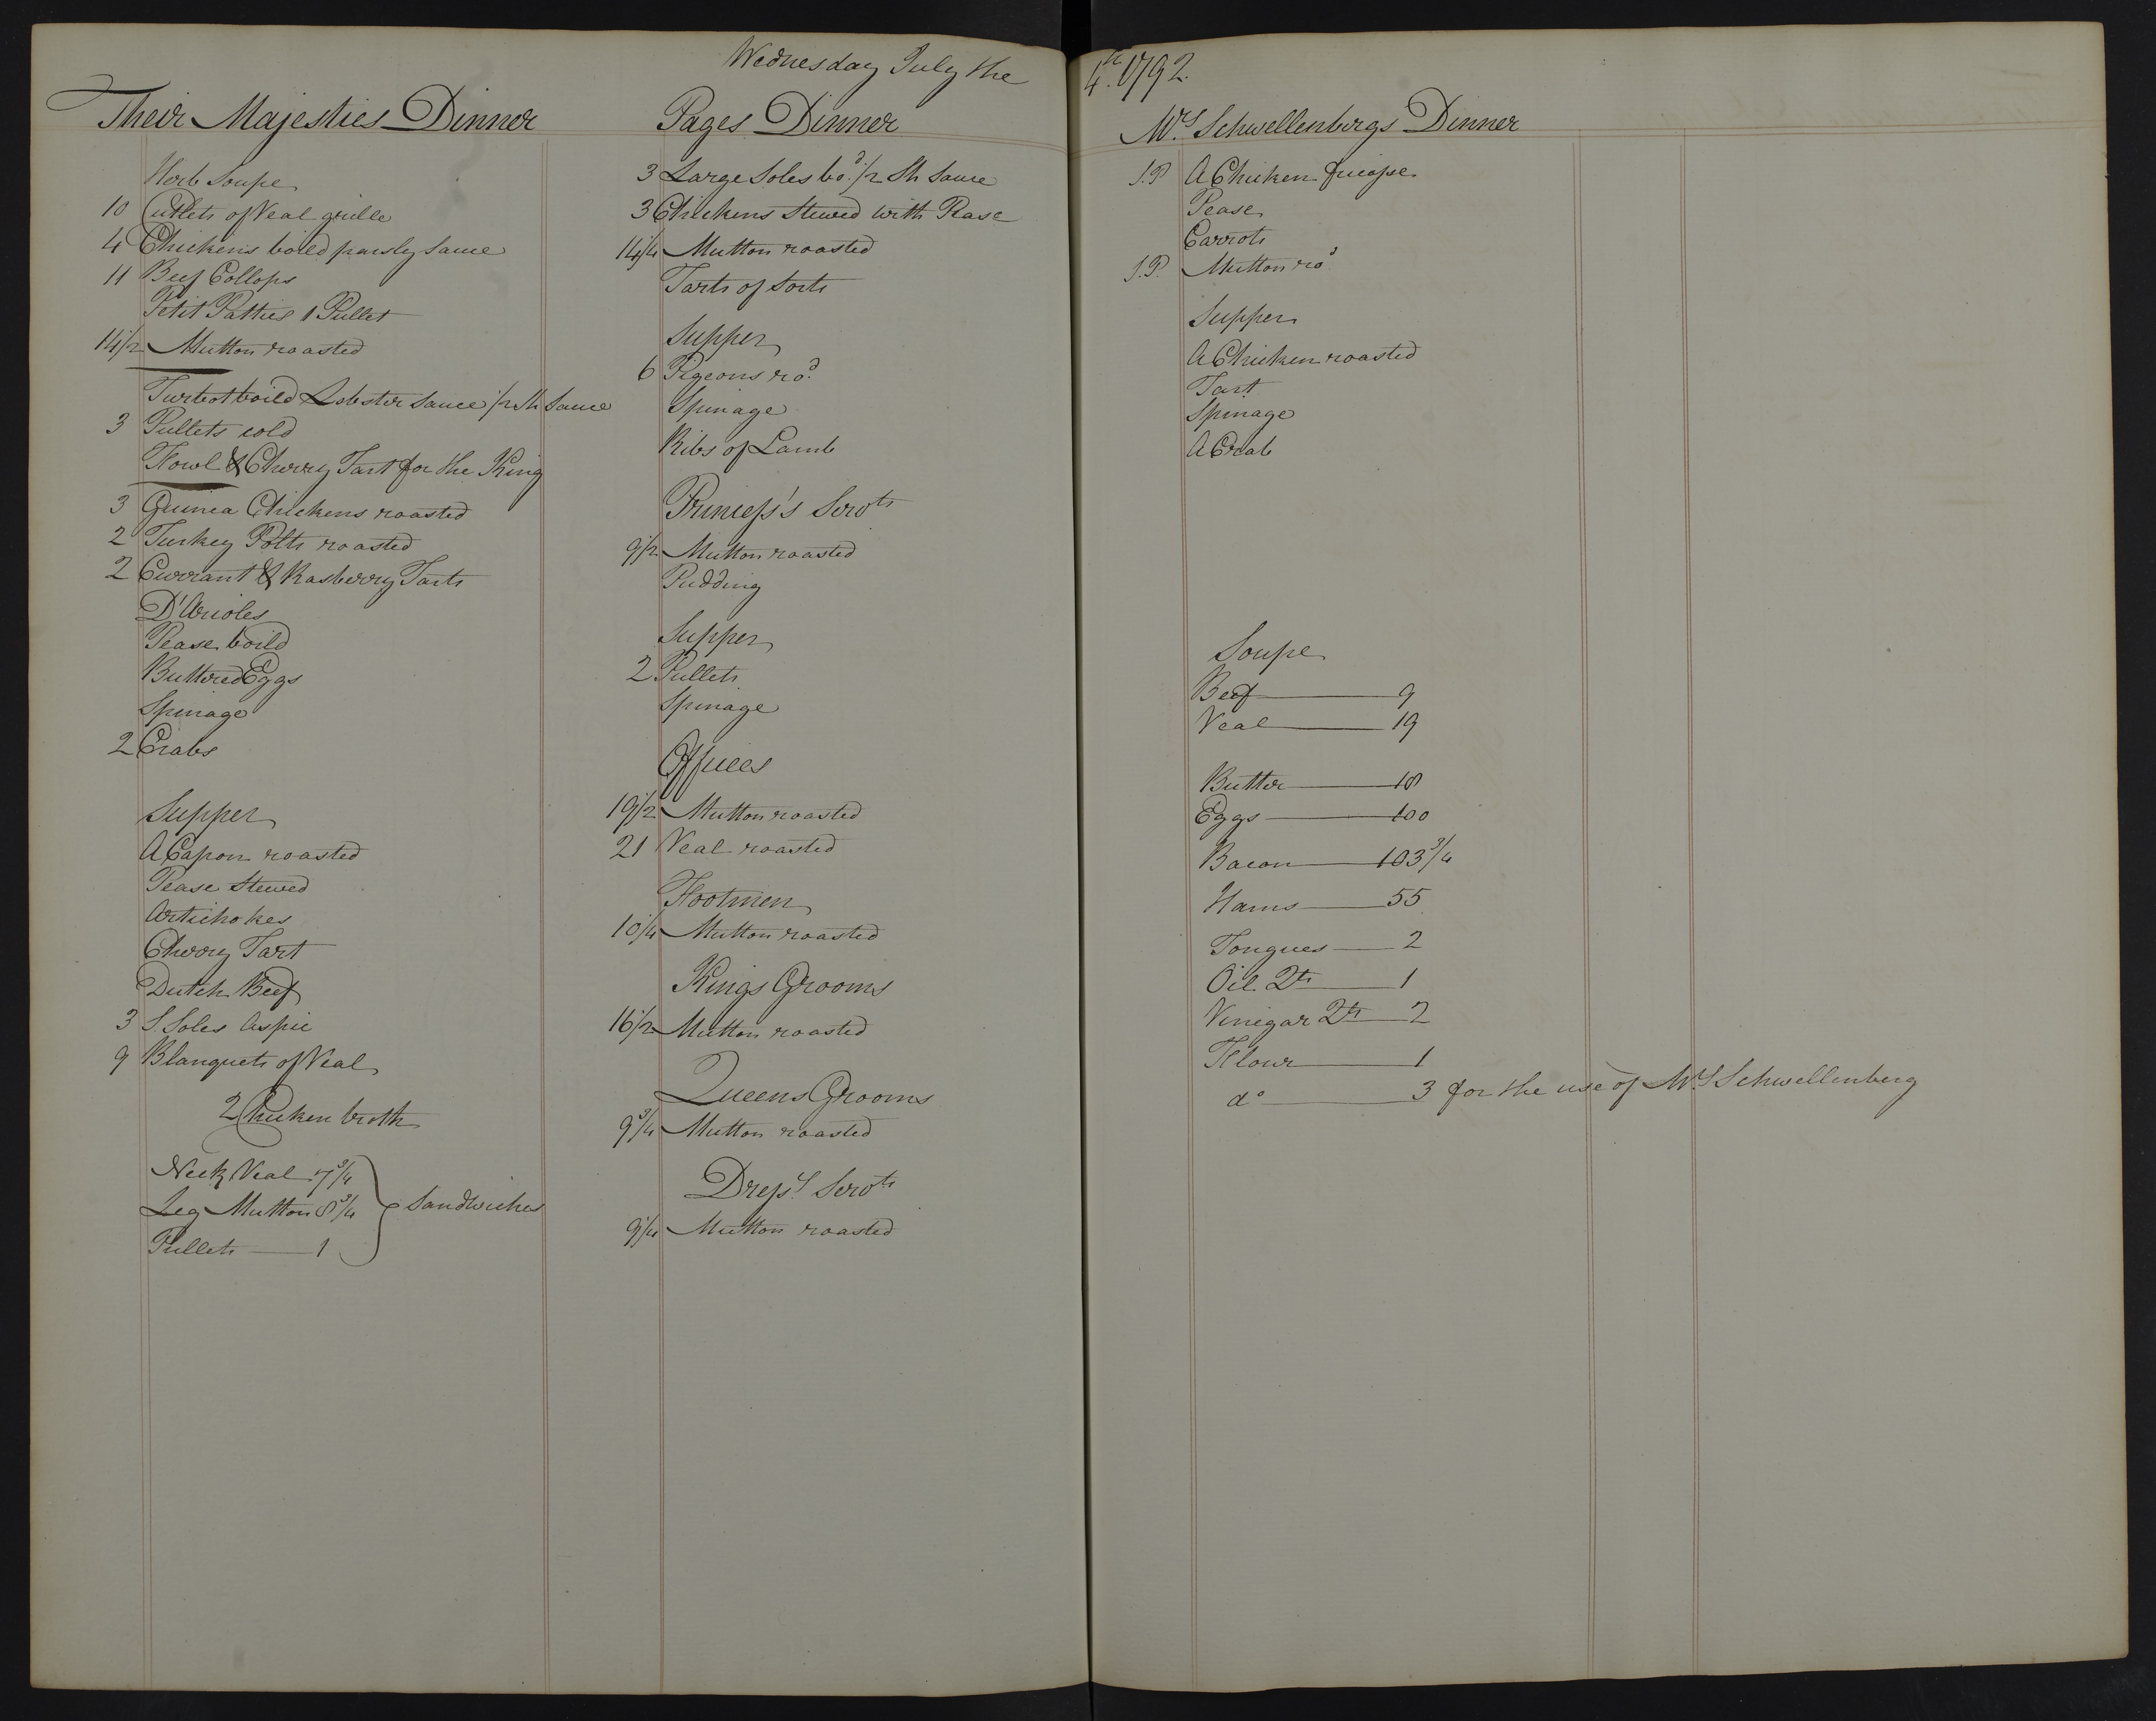 Wednesday July the 4th. 1792.
Their Majesties Dinner
Herb Soupe
10 Cutlets of Veal grille
4 Chickens boild parsly Sauce
11 Beef Collops
Petit Patties 1 Pullet
14 1/2 Mutton roasted
Turbot boild Lobster Sauce 1/2 Sh Sauce
3 Pullets cold
Fowl & Cherry Tart for the King
3 Guinea Chickens roasted
2 Turkey Polts roasted
2 Currant & Rasberry Tarts
D'Arioles
Pease boild
Buttered Eggs
Spinage
2 Crabs
Supper
A Capon roasted
Pease Stewed
Artichokes
Cherry Tart
Dutch Beef
3 S. Soles Aspic
9 Blanquets of Veal
2 Chicken broth
Neck Veal 7 3/4
Leg Mutton 8 3/4
Pullets — 1
Sandwiches
Pages Dinner
3 Large Soles bo.d 1/2 Sh Sauce
3 Chickens Stewed with Pease
14 1/4 Mutton roasted
Tarts of Sorts
Supper
6 Pigeons ro.d
Spinage
Ribs of Lamb
Princess's Servts
9 1/2 Mutton roasted
Pudding
Supper
2 Pullets
Spinage
Offices
19 1/2 Mutton roasted
21 Veal roasted
Footmen
10 1/4 Mutton roasted
Kings Grooms
16 1/2 Mutton roasted
Queens Grooms
9 3/4 Mutton roasted
Dress.s Servts
9 1/4 Mutton roasted
Mrs. Schwellenbergs Dinner
S.P A Chicken
Pease
Carrots
S.P. Mutton rod
Supper
A Chicken roasted
Tart
Spinage
A Crab
Soupe
Beef — 9
Veal — 19
Butter — 18
Eggs — 100
Bacon — 103 3/4
Hams — 55
Tongues — 2
Oil Qts — 1
Vinegar Qts — 2
Flour — 1
do — 3 for the use of Mrs Schwellenberg